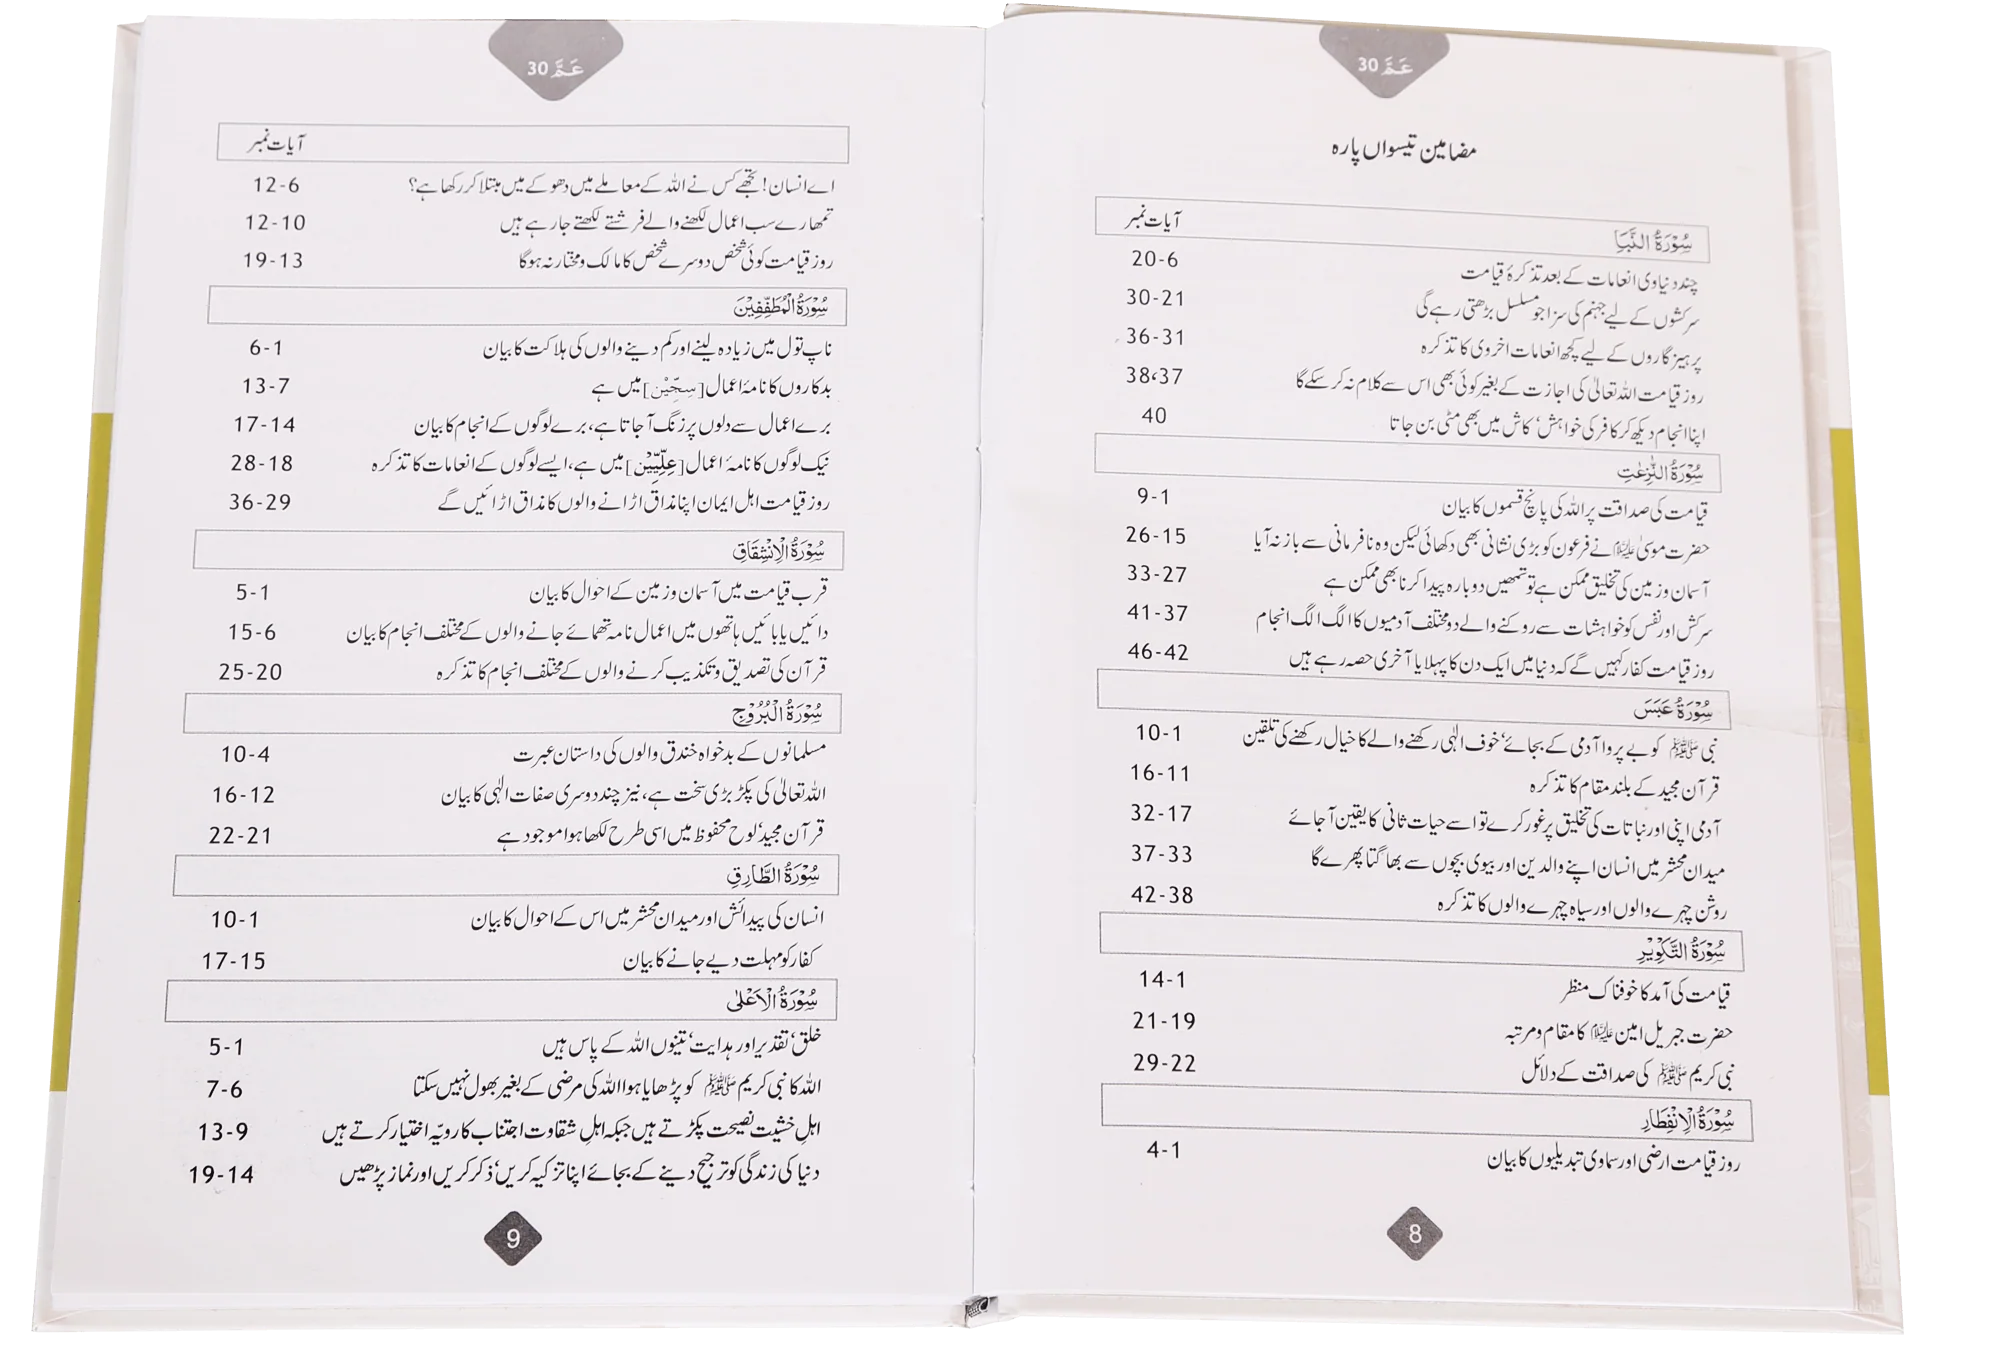 عَمَّ 30
مضامین تیسواں پارہ
آیات نمبر
سُوْرَةُ النَّبَاِ
چند دنیاوی انعامات کے بعد تذکرۂ قیامت 20-6
سرکشوں کے لیے جہنم کی سزا جو مسلسل بڑھتی رہے گی 30-21
پرہیزگاروں کے لیے کچھ انعامات اخروی کا تذکرہ 36-31
روز قیامت اللہ تعالیٰ کی اجازت کے بغیر کوئی بھی اس سے کلام نہ کر سکے گا 38،37
اپنا انجام دیکھ کر کافر کی خواہش‘ کاش میں بھی مٹی بن جاتا 40
سُوْرَةُ النّٰزِعٰتِ
قیامت کی صداقت پر اللہ کی پانچ قسموں کا بیان 9-1
حضرت موسیٰ علیہ السلام نے فرعون کو بڑی نشانی بھی دکھائی لیکن وہ نافرمانی سے باز نہ آیا 26-15
آسمان و زمین کی تخلیق ممکن ہے تو تمھیں دوبارہ پیدا کرنا بھی ممکن ہے 33-27
سرکش اور نفس کو خواہشات سے روکنے والے دو مختلف آدمیوں کا الگ الگ انجام 41-37
روز قیامت کفار کہیں گے کہ دنیا میں ایک دن کا پہلا یا آخری حصہ رہے ہیں 46-42
سُوْرَةُ عَبَسَ
نبی ﷺ کو بے پروا آدمی کے بجائے‘ خوف الٰہی رکھنے والے کا خیال رکھنے کی تلقین 10-1
قرآن مجید کے بلند مقام کا تذکرہ 16-11
آدمی اپنی اور نباتات کی تخلیق پر غور کرے تو اسے حیات ثانی کا یقین آجائے 32-17
میدان محشر میں انسان اپنے والدین اور بیوی بچوں سے بھاگتا پھرے گا 37-33
روشن چہرے والوں اور سیاہ چہرے والوں کا تذکرہ 42-38
سُوْرَةُ التَّكْوِيْرِ
قیامت کی آمد کا خوفناک منظر 14-1
حضرت جبریل امین علیہ السلام کا مقام و مرتبہ 21-19
نبی کریم ﷺ کی صداقت کے دلائل 29-22
سُوْرَةُ الْاِنْفِطَارِ
روز قیامت ارضی اور سماوی تبدیلیوں کا بیان 4-1
8
عَمَّ 30
آیات نمبر
اے انسان! تجھے کس نے اللہ کے معاملے میں دھوکے میں مبتلا کر رکھا ہے؟ 12-6
تمھارے سب اعمال لکھنے والے فرشتے لکھتے جا رہے ہیں 12-10
روز قیامت کوئی شخص دوسرے شخص کا مالک و مختار نہ ہوگا 19-13
سُوْرَةُ الْمُطَفِّفِيْنَ
ناپ تول میں زیادہ لینے اور کم دینے والوں کی ہلاکت کا بیان 6-1
بدکاروں کا نامۂ اعمال [سِجِّيْن] میں ہے 13-7
برے اعمال سے دلوں پر زنگ آ جاتا ہے، برے لوگوں کے انجام کا بیان 17-14
نیک لوگوں کا نامۂ اعمال [عِلِّيِّيْنَ] میں ہے، ایسے لوگوں کے انعامات کا تذکرہ 28-18
روز قیامت اہل ایمان اپنا مذاق اڑانے والوں کا مذاق اڑائیں گے 36-29
سُوْرَةُ الْاِنْشِقَاقِ
قرب قیامت میں آسمان و زمین کے احوال کا بیان 5-1
دائیں یا بائیں ہاتھوں میں اعمال نامہ تھمائے جانے والوں کے مختلف انجام کا بیان 15-6
قرآن کی تصدیق و تکذیب کرنے والوں کے مختلف انجام کا تذکرہ 25-20
سُوْرَةُ الْبُرُوْجِ
مسلمانوں کے بدخواہ خندق والوں کی داستان عبرت 10-4
اللہ تعالیٰ کی پکڑ بڑی سخت ہے، نیز چند دوسری صفات الٰہی کا بیان 16-12
قرآن مجید‘ لوح محفوظ میں اسی طرح لکھا ہوا موجود ہے 22-21
سُوْرَةُ الطَّارِقِ
انسان کی پیدائش اور میدان محشر میں اس کے احوال کا بیان 10-1
کفار کو مہلت دیے جانے کا بیان 17-15
سُوْرَةُ الْاَعْلٰى
خلق‘ تقدیر اور ہدایت‘ تینوں اللہ کے پاس ہیں 5-1
اللہ کا نبی کریم ﷺ کو پڑھایا ہوا اللہ کی مرضی کے بغیر بھول نہیں سکتا 7-6
اہلِ خشیت نصیحت پکڑتے ہیں جبکہ اہلِ شقاوت اجتناب کا رویّہ اختیار کرتے ہیں 13-9
دنیا کی زندگی کو ترجیح دینے کے بجائے اپنا تزکیہ کریں‘ ذکر کریں اور نماز پڑھیں 19-14
9